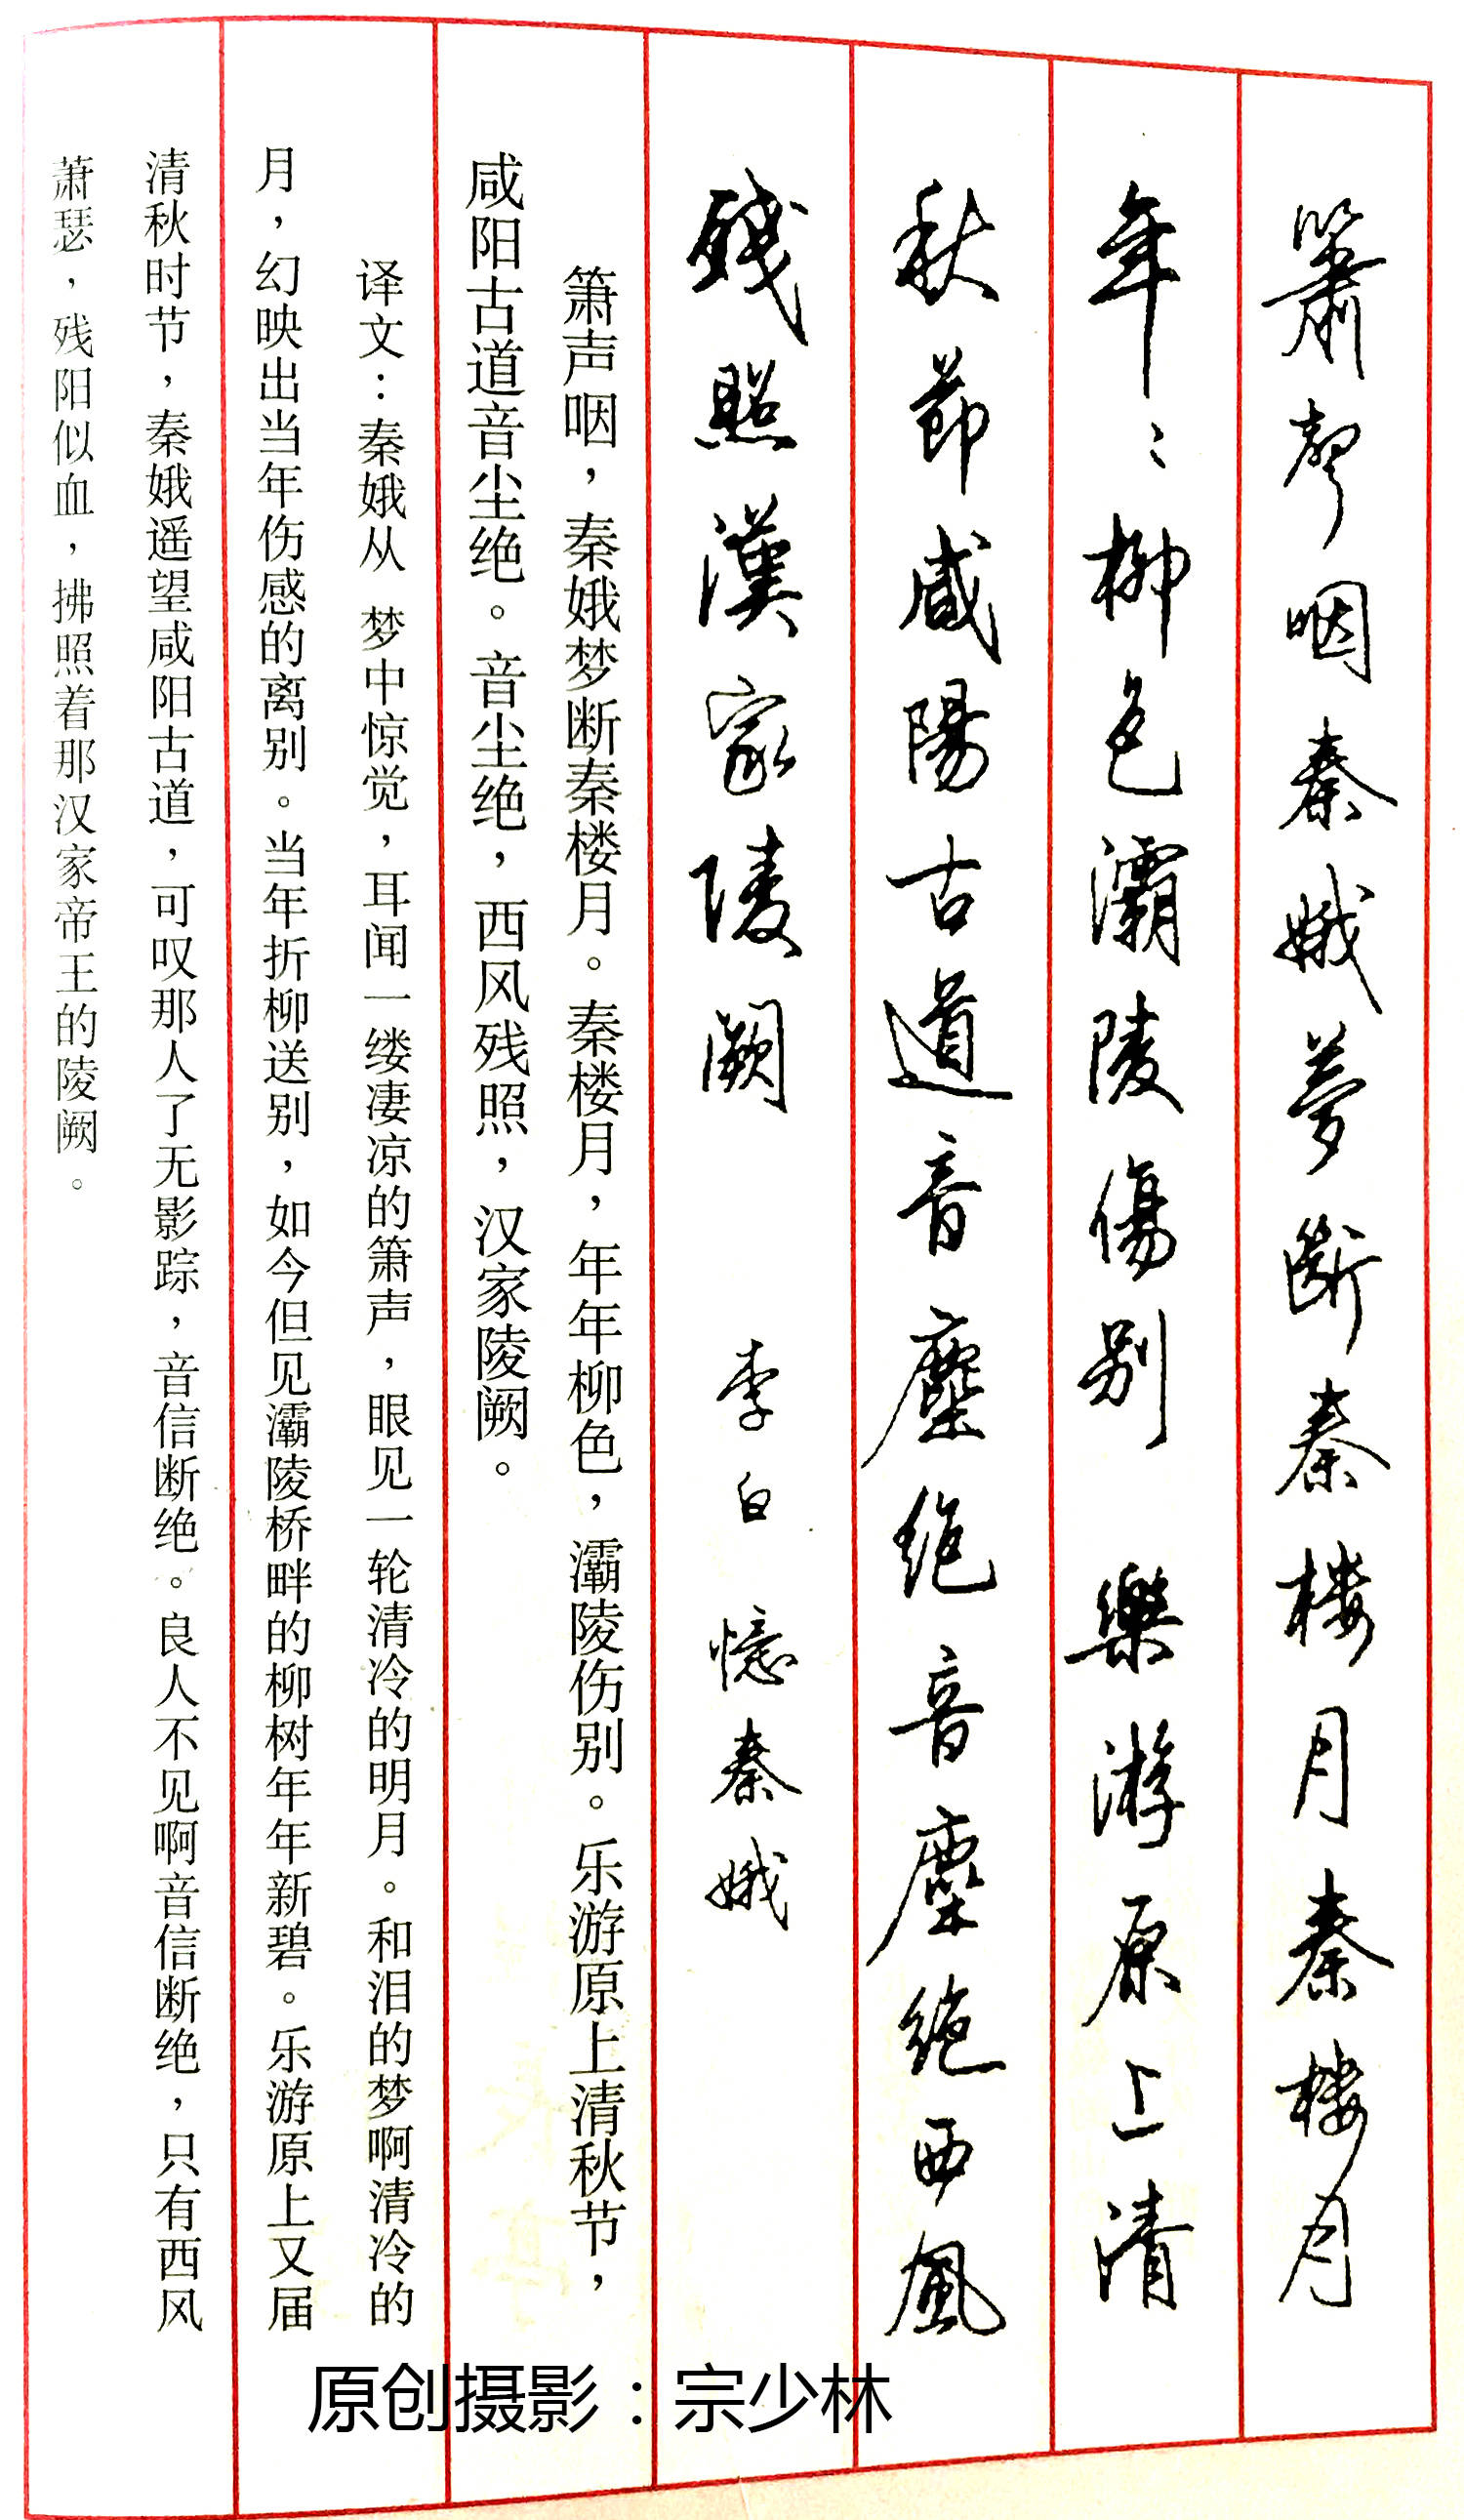 簫聲咽秦娥夢断秦楼月秦楼月
年〻柳色灞陵傷别 樂游原上清
秋節咸陽古道音塵绝音塵绝西風
残照漢家陵阙
李白 憶秦娥
箫声咽，秦娥梦断秦楼月。秦楼月，年年柳色，灞陵伤别。乐游原上清秋节，
咸阳古道音尘绝。音尘绝，西风残照，汉家陵阙。
译文：秦娥从 梦中惊觉，耳闻一缕凄凉的箫声，眼见一轮清冷的明月。和泪的梦啊清冷的
月，幻映出当年伤感的离别。当年折柳送别，如今但见灞陵桥畔的柳树年年新碧。乐游原上又届
清秋时节，秦娥遥望咸阳古道，可叹那人了无影踪，音信断绝。良人不见啊音信断绝，只有西风
萧瑟，残阳似血，拂照着那汉家帝王的陵阙。
原创摄影：宗少林